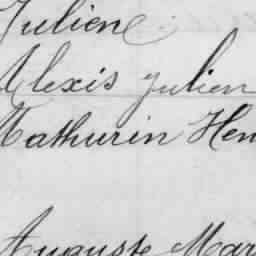 Julien
Alexis Julien
Mathurin Hen
Auguste Mar